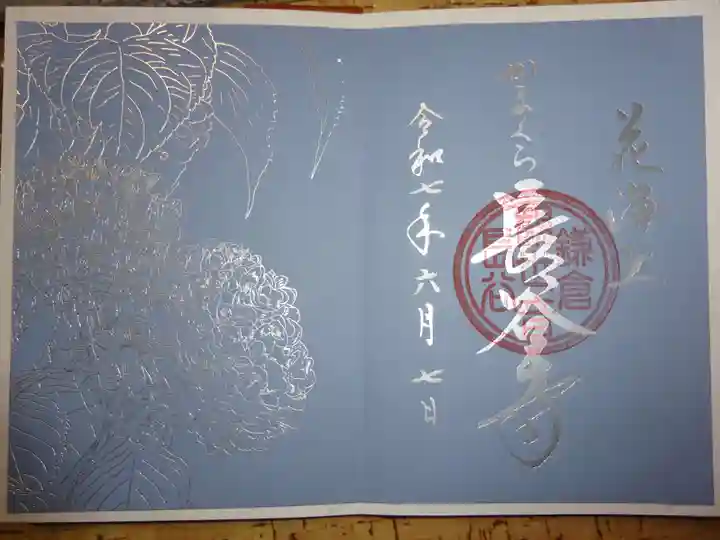 花浄土
かまくら
長谷寺
令和七年六月七日
鎌倉
長谷